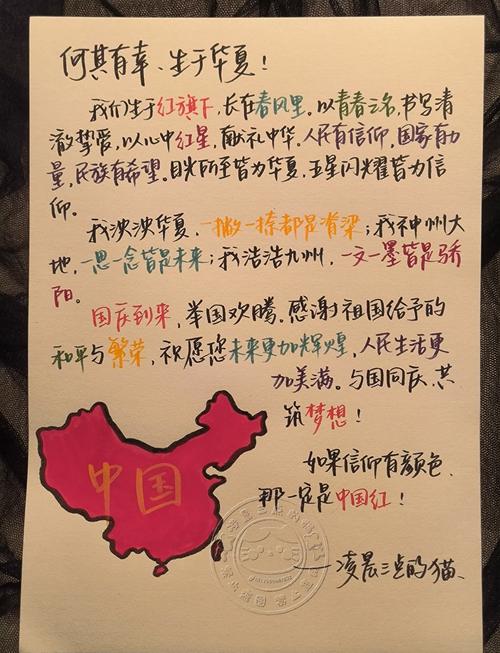 何其有幸、生于华夏！
我们生于红旗下，长在春风里。以青春之名，书写清
澈挚爱，以心中红星，献礼中华。人民有信仰，国家有力
量，民族有希望。目光所至皆为华夏，五星闪耀皆为信
仰。
我泱泱华夏，一撇一捺都是脊梁；我神州大
地，一思一念皆是未来；我浩浩九州，一文一墨皆是骄
阳。
国庆到来，举国欢腾。感谢祖国给予的
和平与繁荣，祝愿您未来更加辉煌，人民生活更
加美满。与国同庆、共
筑梦想！
如果信仰有颜色、
那一定是中国红！
中国
——凌晨三点的猫、